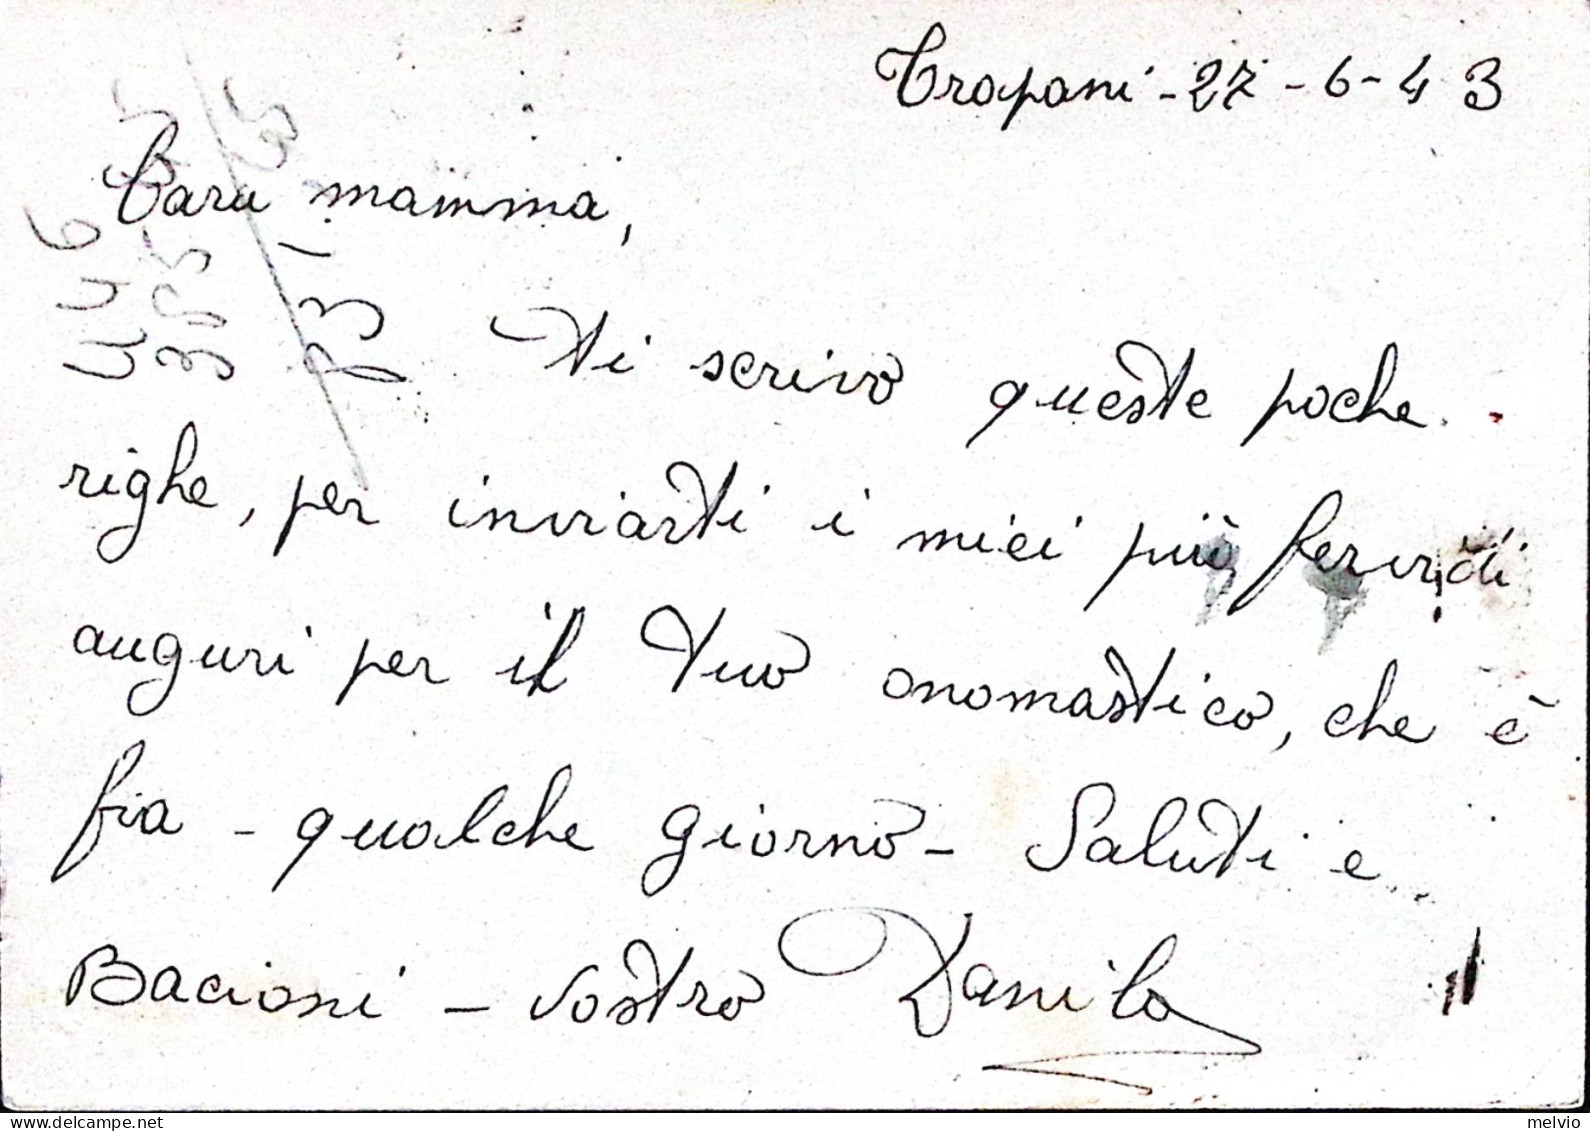 Trapani - 27 - 6 - 43
Cara mamma,
ti scrivo queste poche
righe, per inviarti i miei più fervidi
auguri per il tuo onomastico, che è
fra - qualche giorno - Saluti e
Bacioni - vostro Danilo
melvio